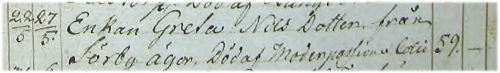 22/5 27/5 Enkan Greta Nils Dotter från
Förby ägor. Död af Moderpassions Colic 59. —